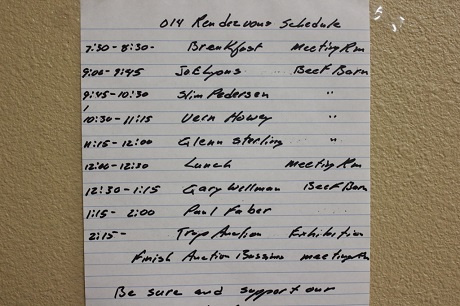 014 Rendezvous Schedule
7:30-8:30- Breakfast Meeting Rm
9:00-9:45 Joe Lyons Beef Barn
9:45-10:30 Slim Pedersen "
10:30-11:15 Vern Howey "
11:15-12:00 Glenn Sterling "
12:00-12:30 Lunch Meeting Rm
12:30-1:15 Gary Wellman Beef Barn
1:15-2:00 Paul Faber
2:15- Traps Auction Exhibition
Finish Auction Bussins meeting Rm
Be sure and support our